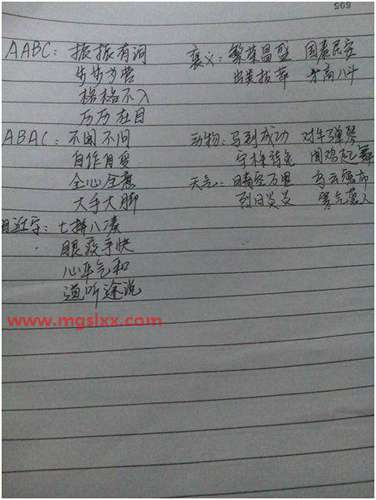 AABC: 振振有词 褒义: 繁荣昌盛 国泰民安
步步为营 出类拔萃 才高八斗
格格不入
历历在目
ABAC: 不闻不问 动物: 马到成功 对牛弹琴
自作自受 守株待兔 闻鸡起舞
全心全意 天气: 晴空万里
大手大脚 烈日炎炎 寒气逼人
七拼八凑
眼疾手快
心平气和
道听途说
www.mgslxx.com